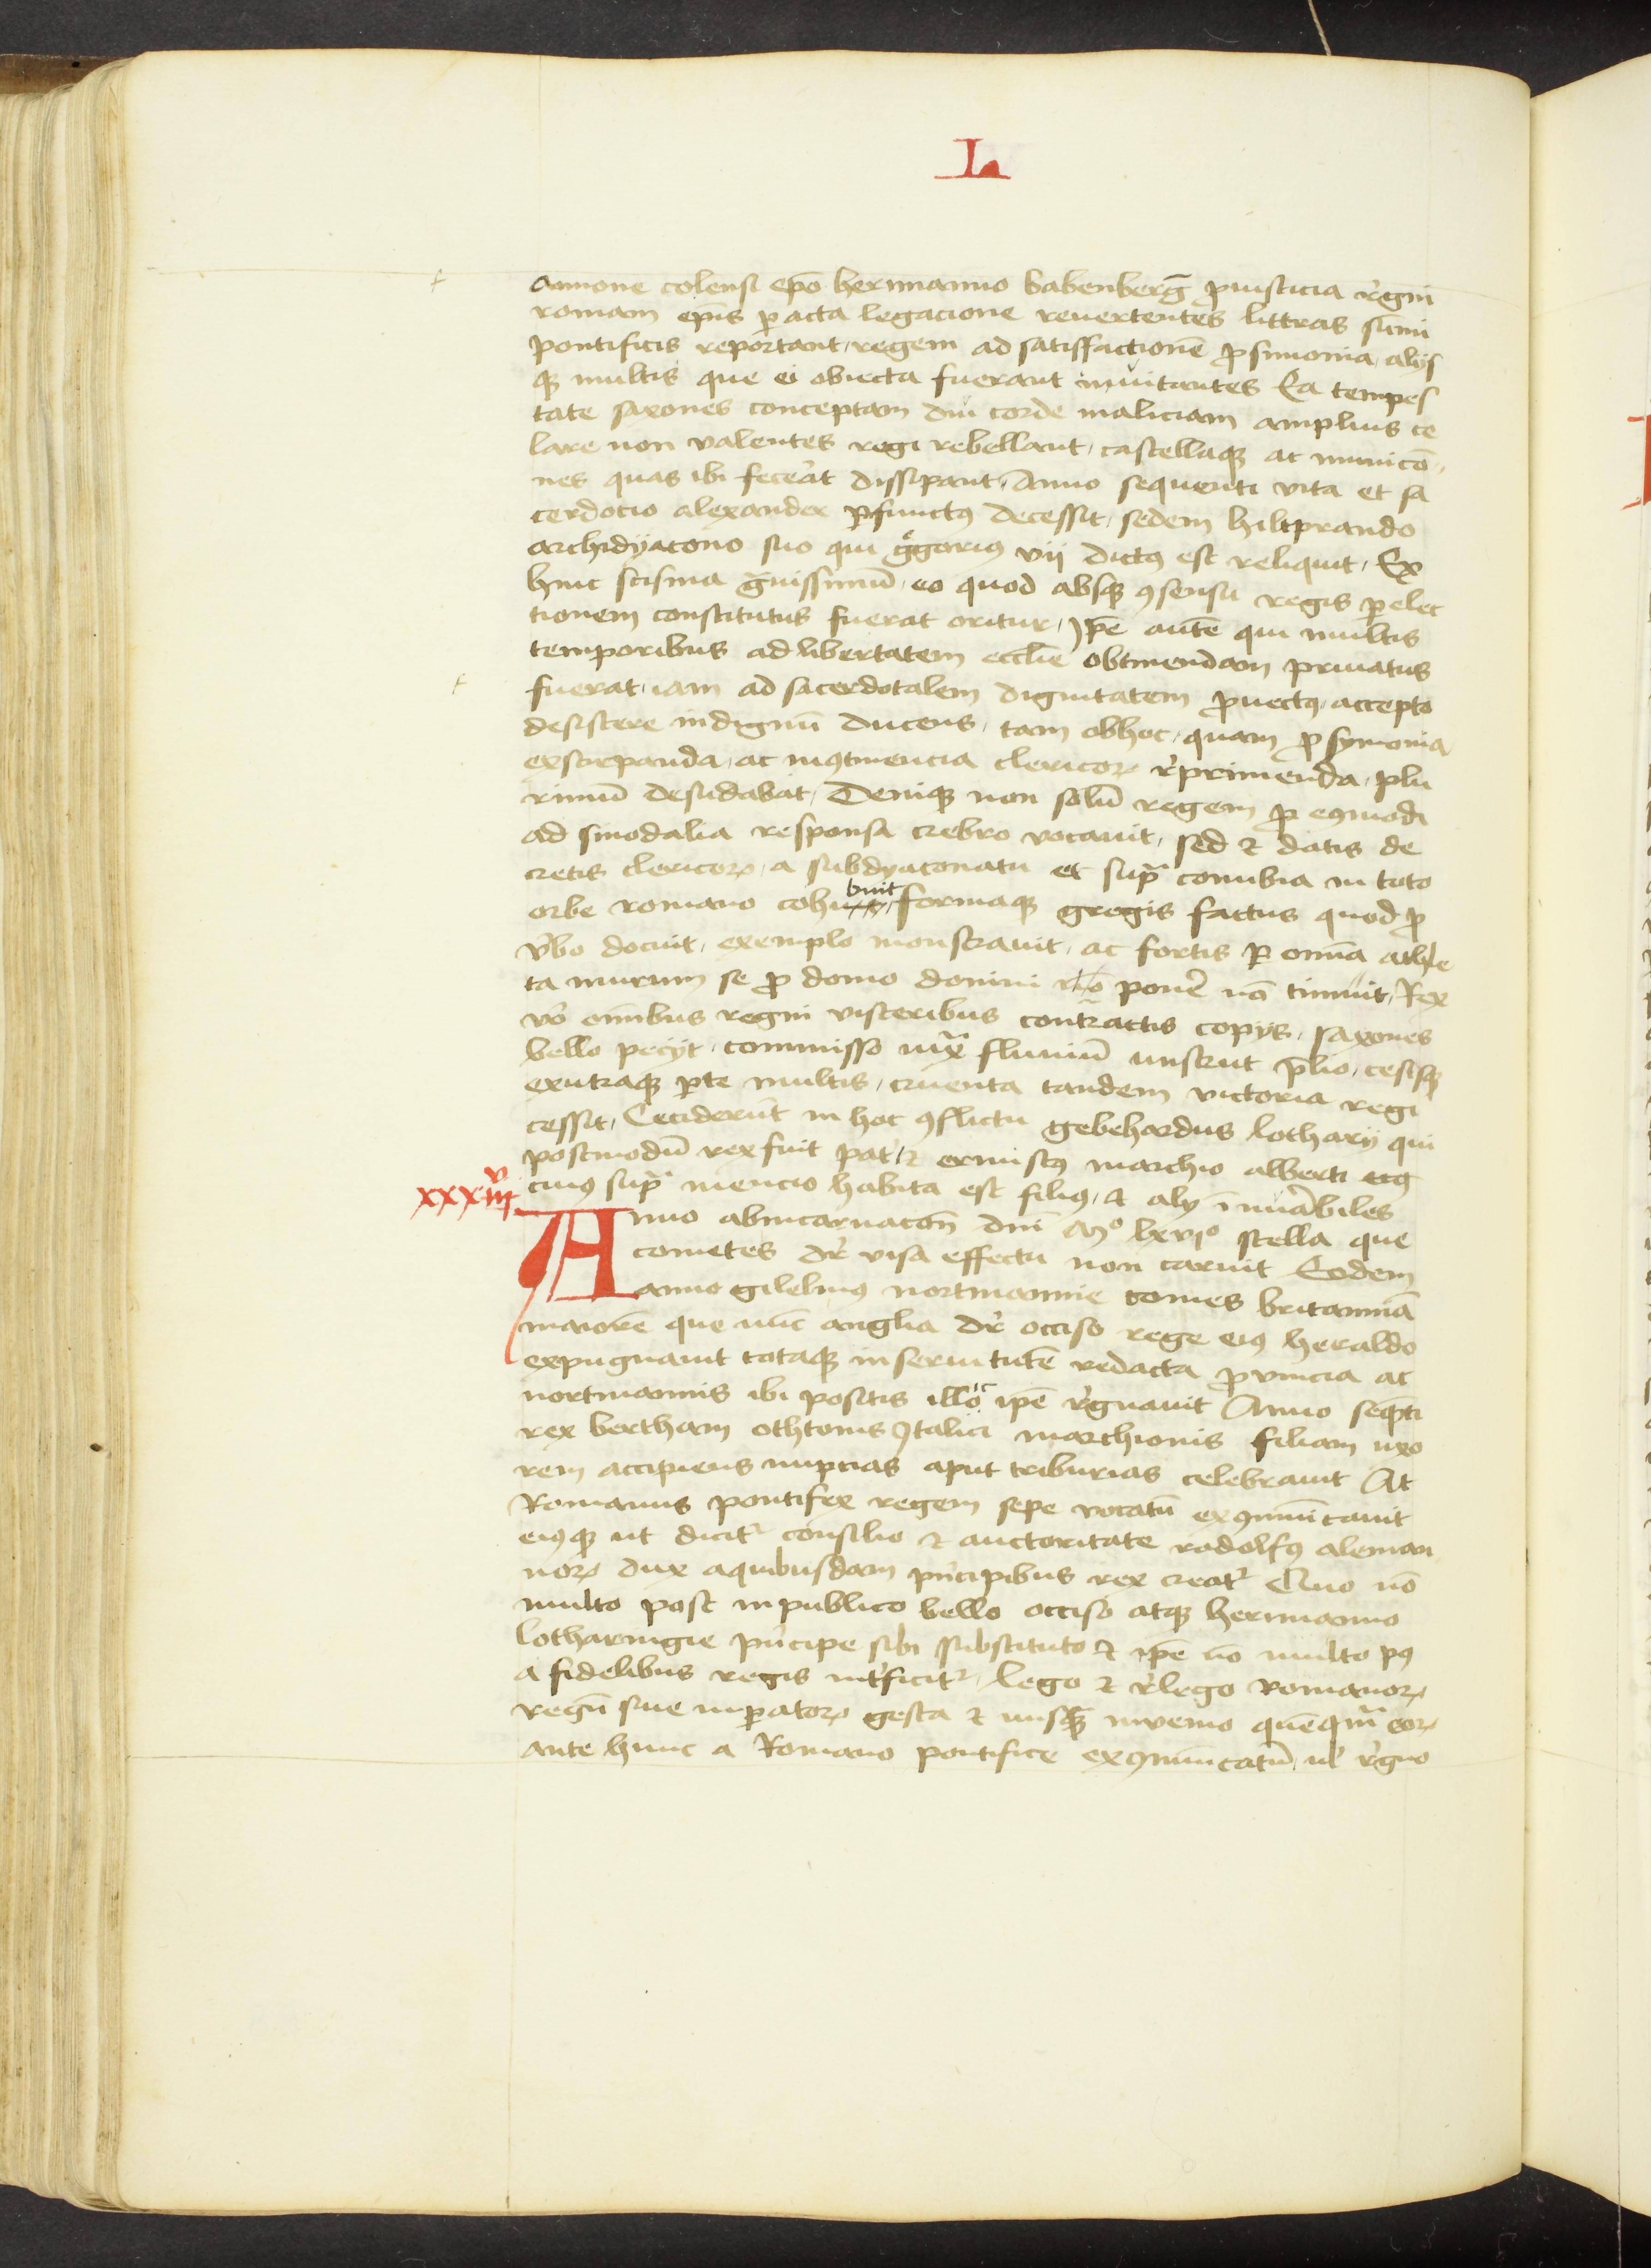 L
Annone colensi epō hermanno babenberḡ ꝓ iusticia r̄gni
romam ep̄us ꝑacta legacione reuertentes littras sūmi
pontificis reportant, regem ad satisffactionē ꝓ simonia alijs
qꝫ multis que ei obiecta fuerant inuitantes Ea tempes
tate saxones conceptam diu corde maliciam amplius ce
lare non valentes regi rebellant, castellaqꝫ ac municō
nes quas ibi fecerāt dissipant, Anno sequenti vita et sa
cerdocio alexander ꝑfunctꝰ decessit, sedem hiltprando
archidyacono suo qui gͤgorius vij dictꝰ est reliquit, Ex
hinc scisma g̃uissimū, eo quod absqꝫ ꝯsensu regis ꝑ elec
tionem constitutus fuerat oritur, Ip̄e autē qui multis
temporibus ad libertatem ecclīe obtinendam priuatus
fuerat, iam ad sacerdotalem dignitatem ꝓuectꝰ, accepto
desistere indignū ducens, tam ob hoc, quam ꝓ symonia
exstirpanda, ac inꝯtinencia clericoꝝ r̄primenda, plu
rimū desudabat, Deniqꝫ non solū regem ꝑ eꝯmodi
ad sinodalia responsa crebro vocauit, sed ⁊ datis de
cretis clericoꝝ, a subdyaconatu et sup̃ conubia in toto
orbe romano cohibuit, formaqꝫ gregis factus quod ꝓ
v̄bo docuit, exemplo monstrauit, ac fortis ꝑ om̄ia athle
ta murum se ꝓ domo domini ponē nō timuit, Rex
vō om̄ibus regni visceribus contractis copijs, saxones
bello petijt, commisso iuxᷓ fluuiū unstrut p̄lio, cesisqꝫ
ex utraqꝫ ꝑte multis, cruenta tandem victoria regi
cessit, Ceciderūt in hoc ꝯflictu gebehardus lotharij qui
postmodū rex fuit pat̄, ⁊ ernistꝰ marchio alberti
xxxiiij v cuiꝰ sup̃ mencio habita est filiꝰ, ⁊ alij īnuābiles
Anno ab incarnacōn dn̄i Mº lxviº stella que
cometes dr̄ visa effectu non caruit Eodem
anno gilelmꝰ nortmannie comes britanniā
maiorē que nūc anglia dr̄ occiso rege eiꝰ heraldo
expugnauit totaqꝫ in seruitutē redacta ꝓvincia ac
nortmannis ibi positis illoc ip̄e r̄gnauit Anno seq̄nti
rex bertham othtonis Italici marchionis filiam uxo
rem accipiens nupcias aput triburias celebrauit At
Romanus pontifex regem sepe vocatū exꝯmūicauit
eiꝰqꝫ ut dicit᷑ consilio ⁊ auctoritate rodolfꝰ aleman
noꝝ dux a quibusdam p̄ncipibus rex creat᷑ Quo nō
multo post in publico bello occiso atqꝫ hermanno
lotharingie p̄ncipe sibi substituto ⁊ ip̄e nō multo pꝰ
a fidelibus regis int̄ficit᷑, lego ⁊ r̄lego Romanoꝝ
regū siue imꝑatoꝝ gesta ⁊ nusqᷓꝫ inuenio quēqᷓm eoꝝ
ante hunc a Romano pontifice exꝯmūicatū, ul̄ r̄gno